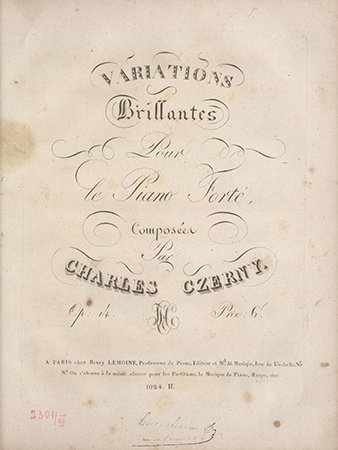 VARIATIONS
Brillantes
Pour
le Piano Forté,
Composées
Par
CHARLES CZERNY.
Op: 14. Prix: 6f
A PARIS chez Henry LEMOINE, Professeur de Piano, Editeur et Md. de Musique, Rue de l'échelle, No
Na On s'abonne à la même adresse pour les Partitions, la Musique de Piano, Harpe, etc
1024. H.
2301/III